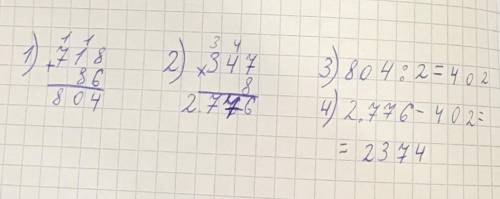 1) 1 1
718
+ 86
804
2) 3 4
347
× 8
2.776
3) 804 : 2 = 402
4) 2.776 - 402 =
= 2374